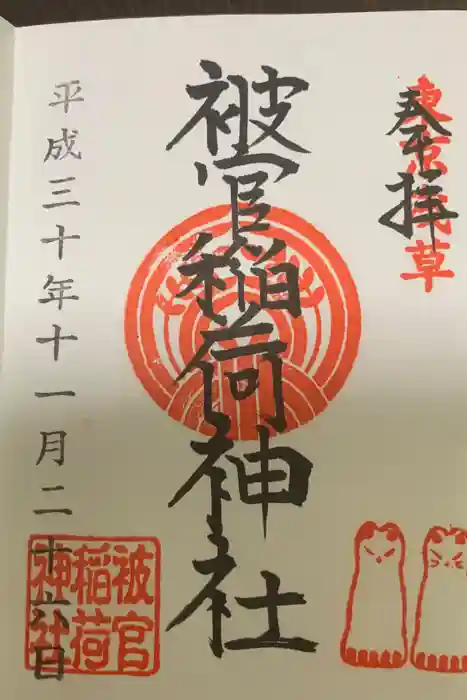 東京浅草
奉拝
被官稲荷神社
平成三十年十一月二十六日
被官
稲荷
神社